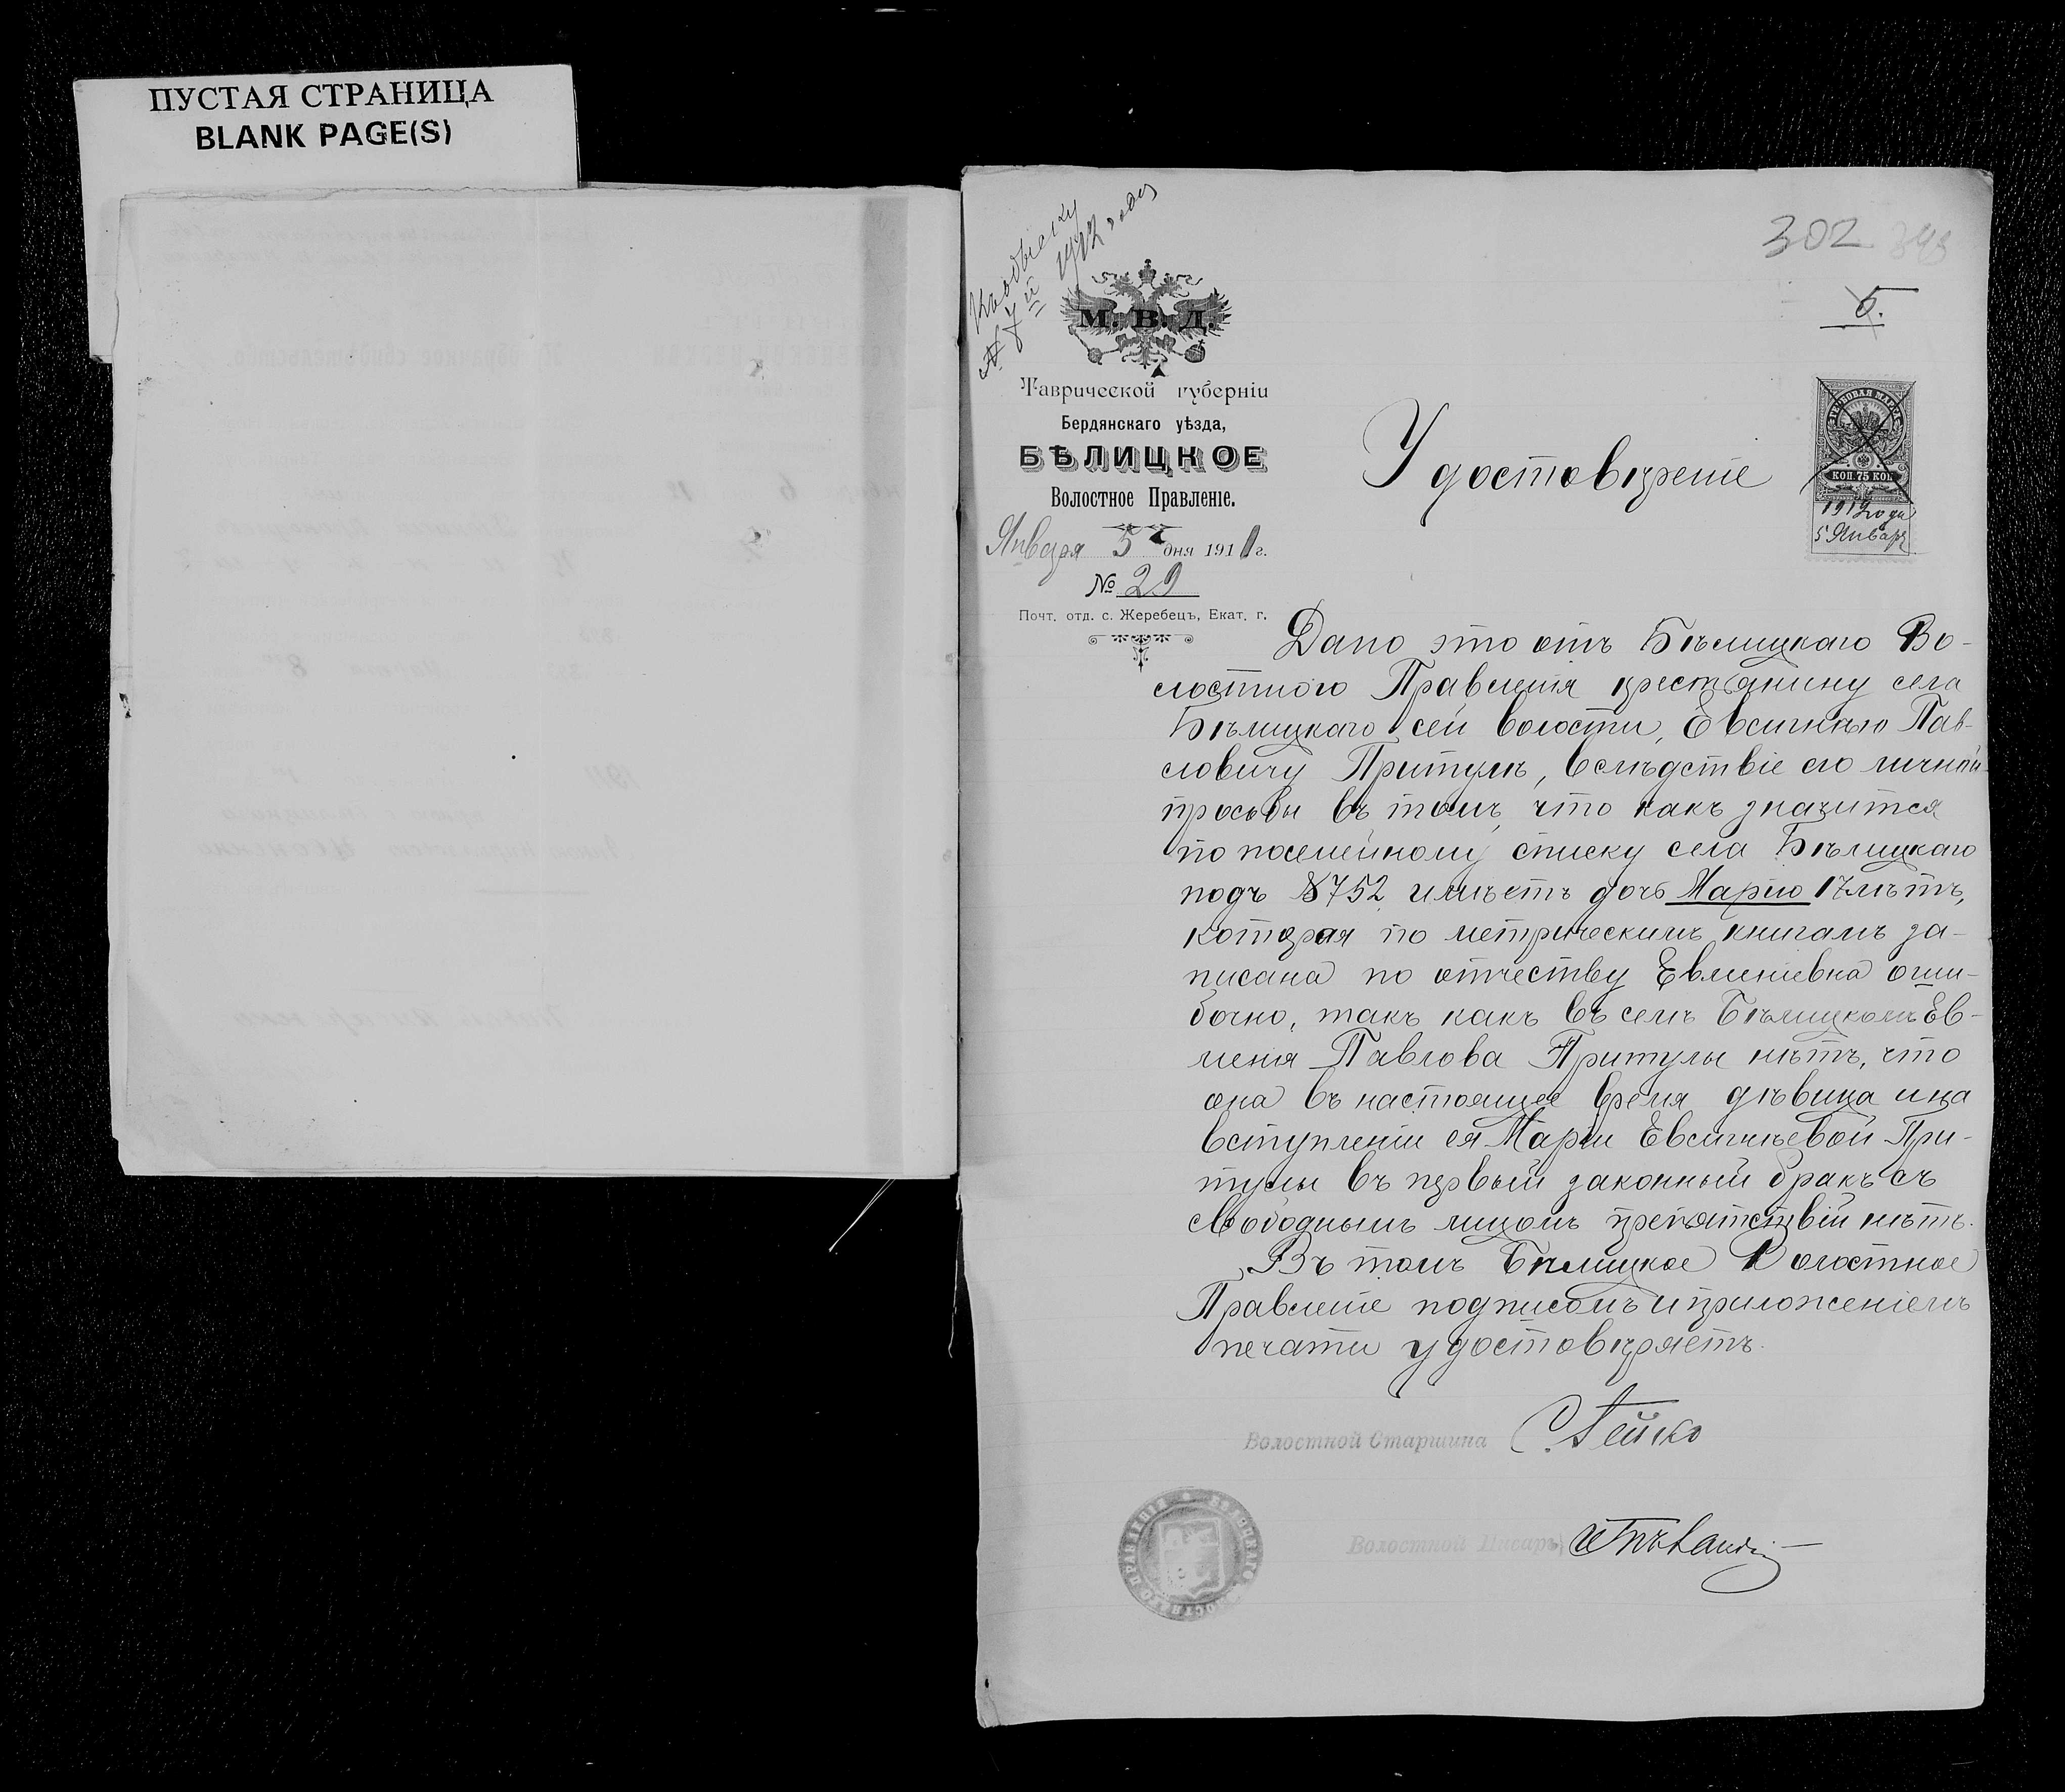 ПУСТАЯ СТРАНИЦА
BLANK PAGE(S)
Къ обыску
№ 7й 1912 года
302
5.
М. В. Д.
Таврической губерніи
Бердянскаго уѣзда,
БѢЛИЦКОЕ
Волостное Правленіе.
Января 5 дня 1911 г.
№ 29
Почт. отд. с. Жеребецъ, Екат. г.
ГЕРБОВАЯ МАРКА
КОП. 75 КОП.
1912 года
5 Январ
Удостовѣреніе
Дано это отъ Бѣлицкаго Во-
лостного Правленія крестьянину села
Бѣлицкаго сей волости, Евсигнѣю Пав-
ловичу Притулѣ, вслѣдствіе его личной
просьбы въ томъ, что какъ значится
по посемейному списку села Бѣлицкаго
подъ № 752 имѣетъ дочь Марію 17 лѣтъ,
которая по метрическимъ книгамъ за-
писана по отчеству Евменіевна оши-
бочно, такъ какъ въ селѣ Бѣлицкомъ Ев-
менія Павлова Притулы нѣтъ, что
она въ настоящее время дѣвица и на
вступленіи ея Маріи Евсигнѣевой При-
тулы въ первый законный бракъ съ
свободнымъ лицомъ препятствій нѣтъ.
Въ томъ Бѣлицкое Волостное
Правленіе подписомъ и приложеніемъ
печати удостовѣряетъ.
Волостной Старшина
Волостной Писарь